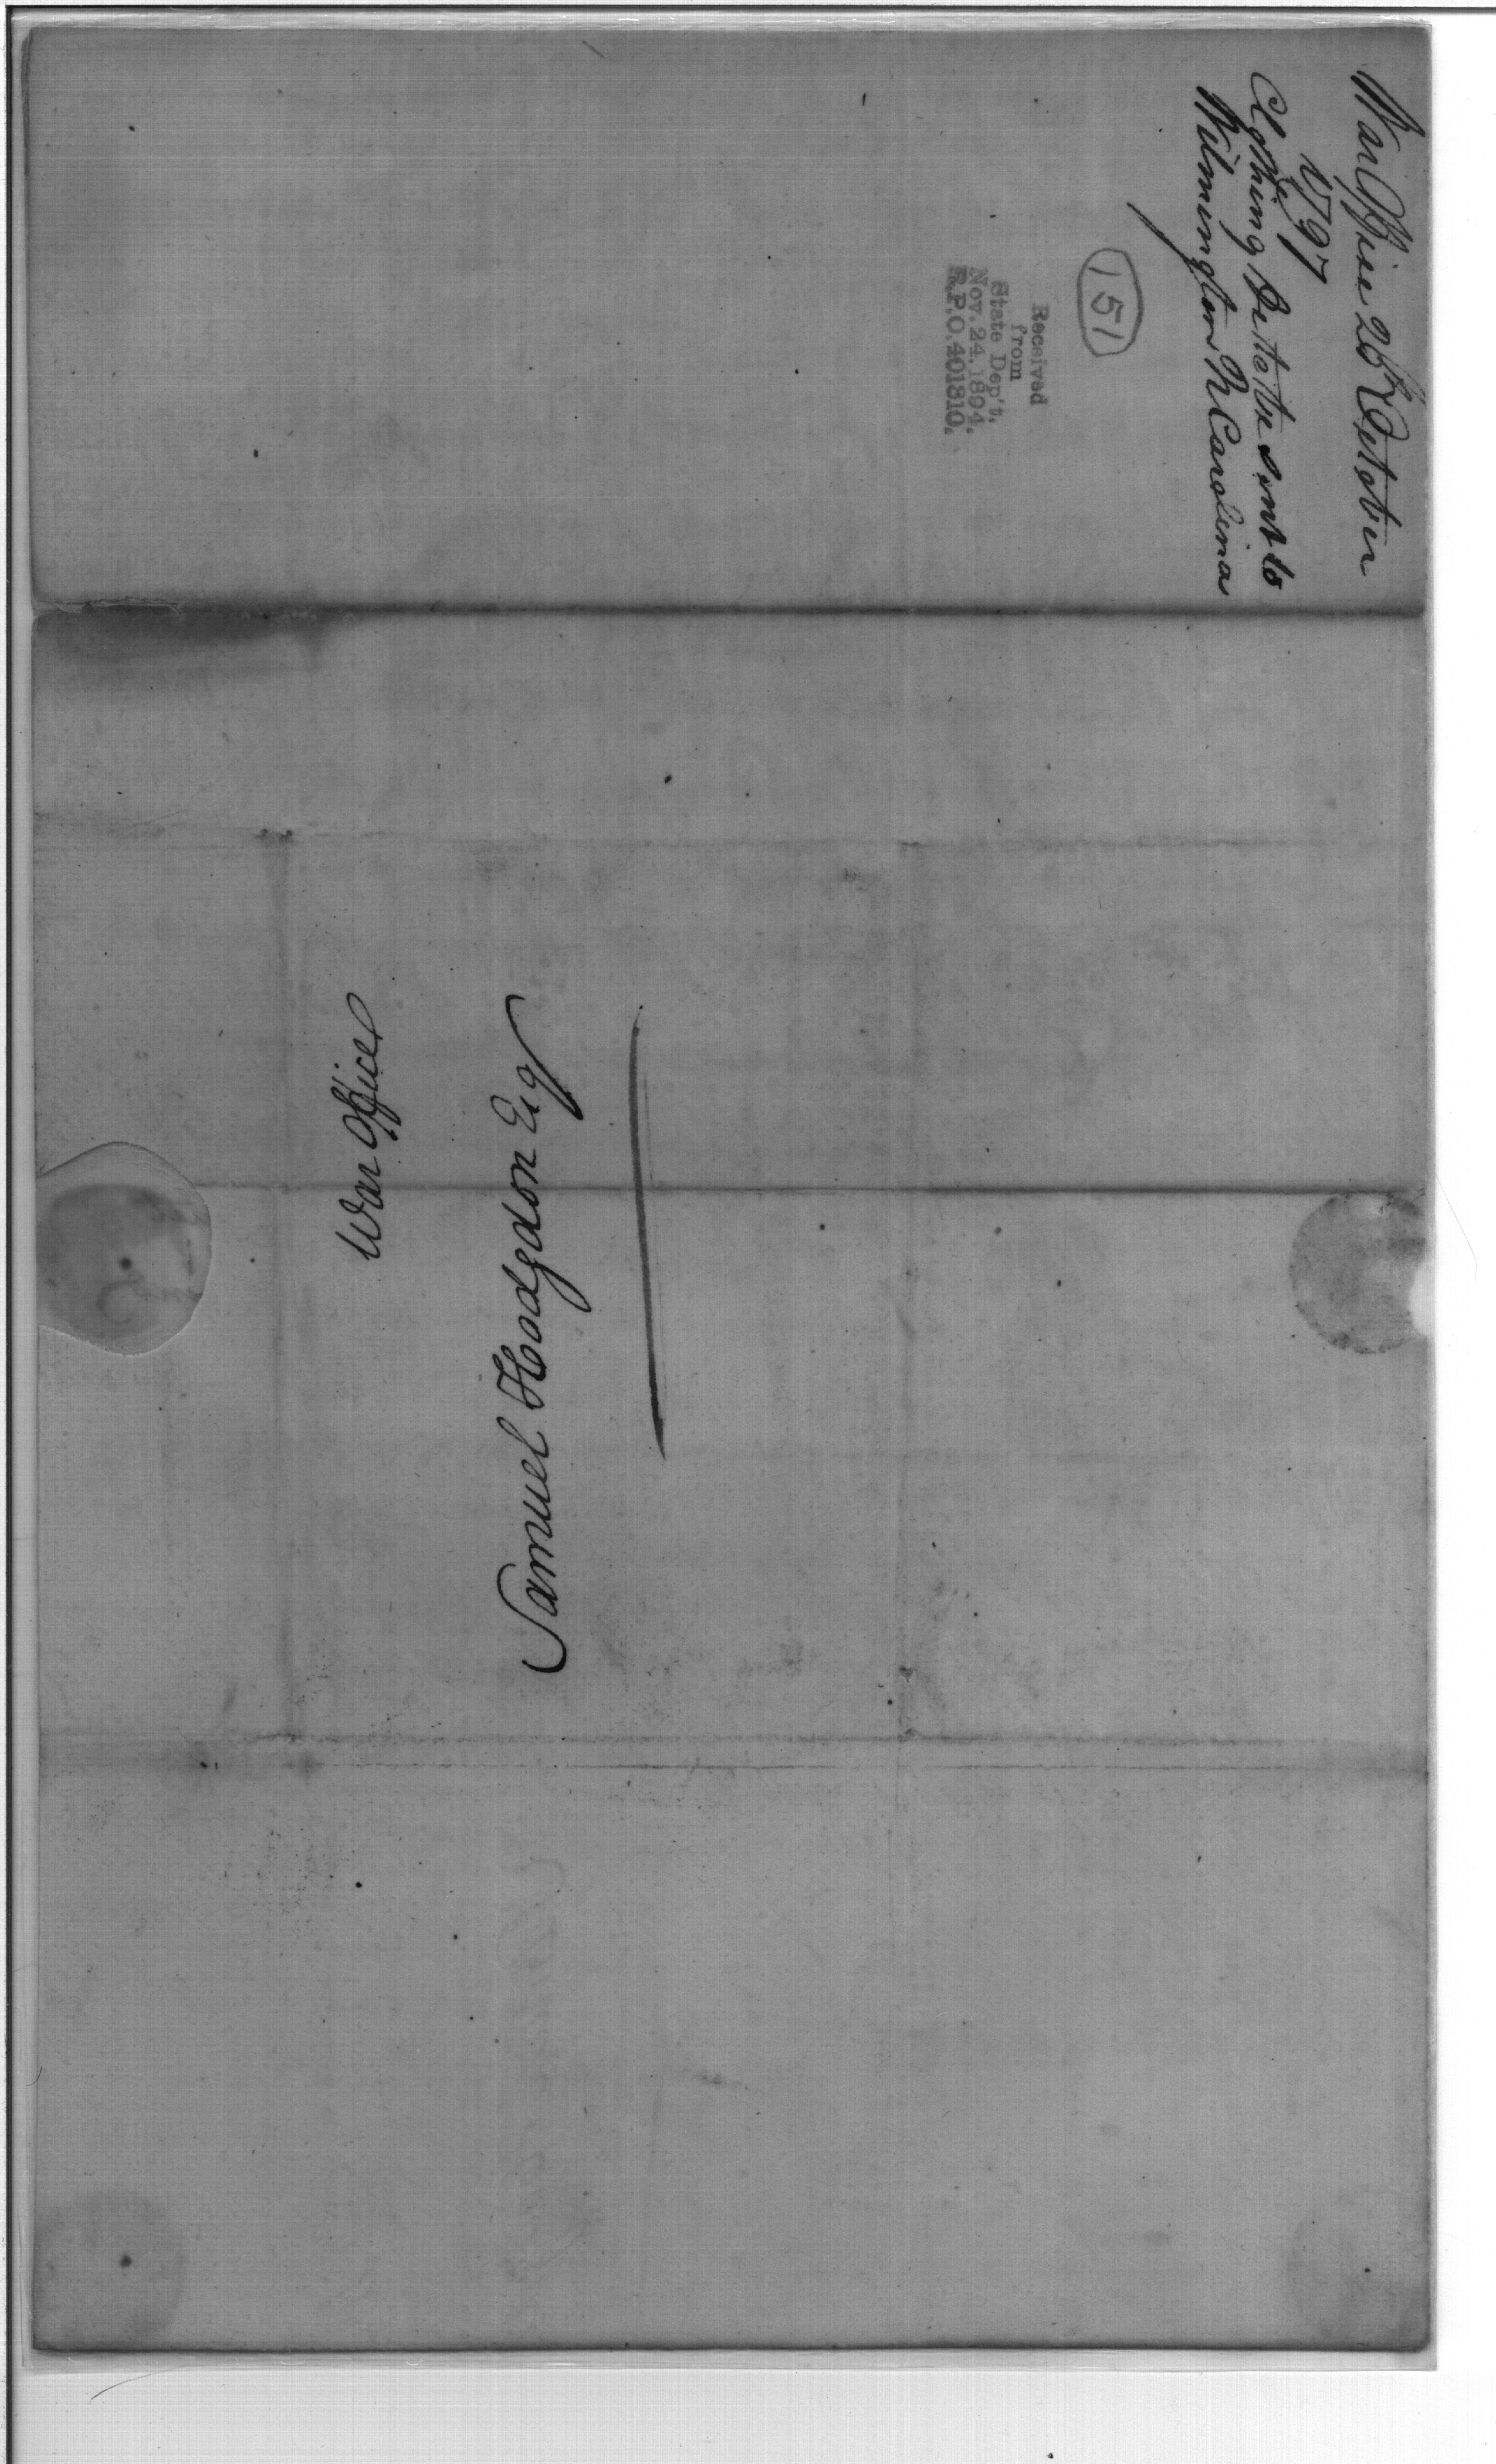 War Office 26th October
1797
Clothing De to be sent to
Wilmington N Carolina
151
Received
from
State Dep't.
Nov. 24, 1894.
R.P.O. 401810.
War Office
Samuel Hodgdon Esq